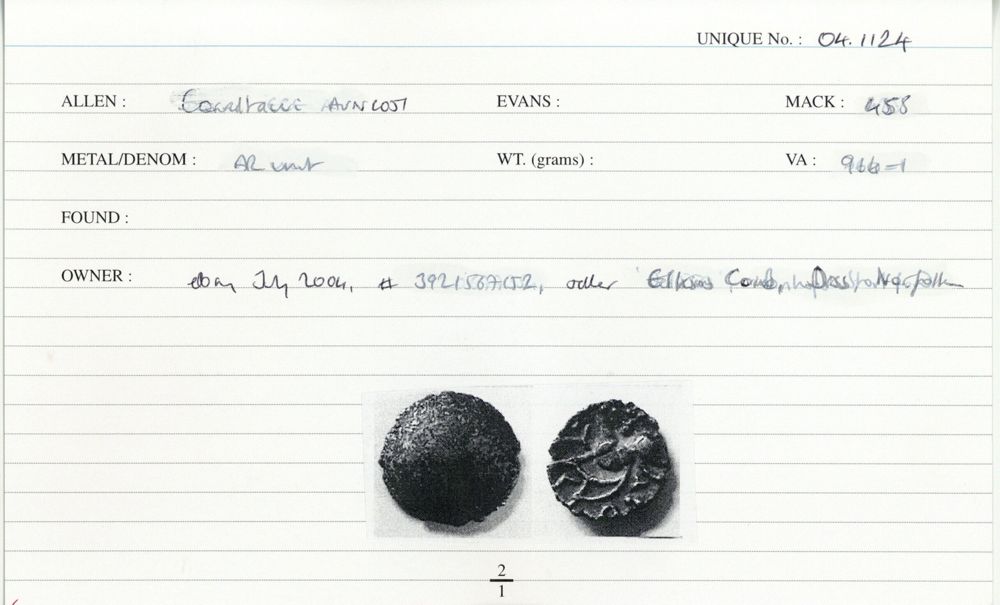 UNIQUE No. : 04.1124
ALLEN : Corieltavi AVN COST EVANS : MACK : 458
METAL/DENOM : AR unit WT. (grams) : VA : 914-1
FOUND :
OWNER : ebay July 2004, # 3921567152, seller Norfolk
2
1